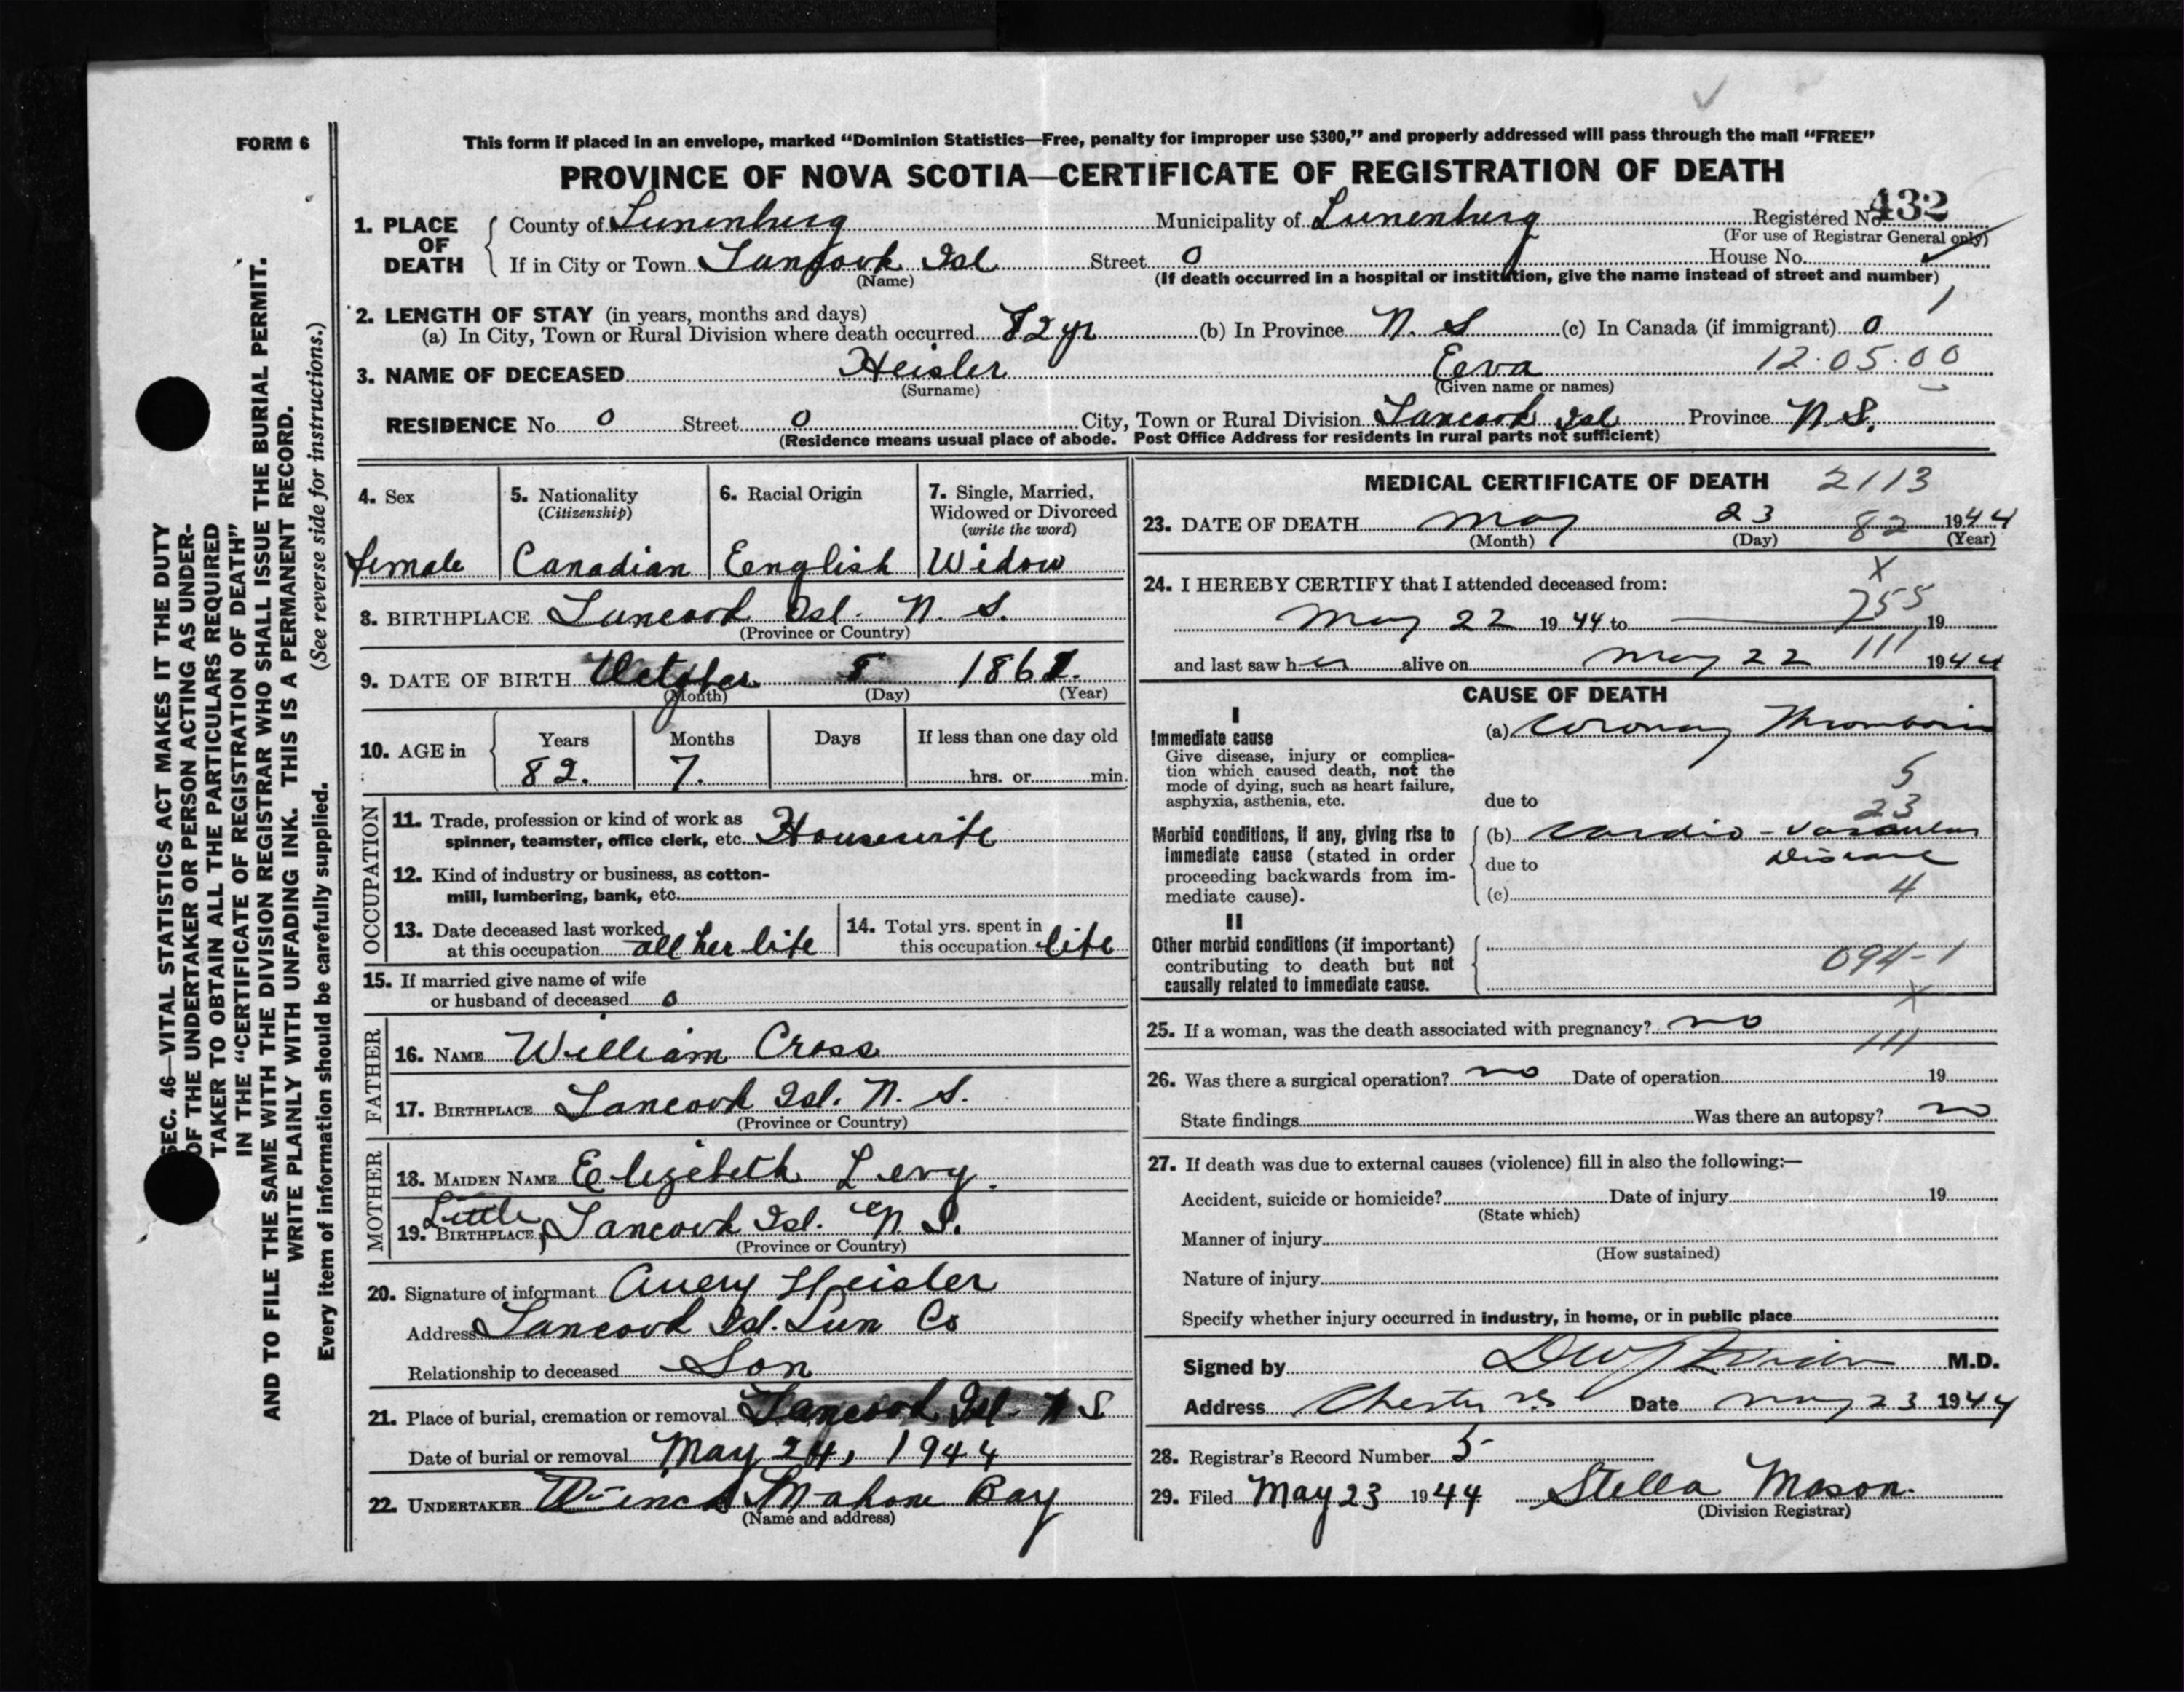 FORM 6
This form if placed in an envelope, marked “Dominion Statistics—Free, penalty for improper use $300,” and properly addressed will pass through the mail “FREE”
PROVINCE OF NOVA SCOTIA—CERTIFICATE OF REGISTRATION OF DEATH
432
1. PLACE OF DEATH County of Lunenburg Municipality of Lunenburg Registered No.
(For use of Registrar General only)
If in City or Town Tancook Isl Street 0 House No.
(Name) (If death occurred in a hospital or institution, give the name instead of street and number)
2. LENGTH OF STAY (in years, months and days) 1
(a) In City, Town or Rural Division where death occurred 82 yr (b) In Province N. S (c) In Canada (if immigrant) 0
3. NAME OF DECEASED Heisler Eeva 12.05.00
(Surname) (Given name or names)
RESIDENCE No. 0 Street 0 City, Town or Rural Division Tancook Isl Province N.S.
(Residence means usual place of abode. Post Office Address for residents in rural parts not sufficient)
4. Sex
female
5. Nationality
(Citizenship)
Canadian
6. Racial Origin
Eenglish
7. Single, Married,
Widowed or Divorced
(write the word)
Widow
8. BIRTHPLACE Tancook Isl. N. S.
(Province or Country)
9. DATE OF BIRTH October 8 186
(Month) (Day) (Year)
10. AGE in Years Months Days If less than one day old
82. 7. hrs. or min.
OCCUPATION
11. Trade, profession or kind of work as
spinner, teamster, office clerk, etc. Housewife
12. Kind of industry or business, as cotton-
mill, lumbering, bank, etc.
13. Date deceased last worked
at this occupation all her life
14. Total yrs. spent in
this occupation life
15. If married give name of wife
or husband of deceased 0
FATHER
16. NAME William Cross
17. BIRTHPLACE Tancook Isl. N. S.
(Province or Country)
MOTHER
18. MAIDEN NAME Elizebeth Levy.
19. BIRTHPLACE Little Tancook Isl. N S.
(Province or Country)
20. Signature of informant Avery Heisler
Address Tancook Isl. Lun Co
Relationship to deceased Son
21. Place of burial, cremation or removal Tancook Isl N S
Date of burial or removal May 24, 1944
22. UNDERTAKER Mahone Bay
(Name and address)
MEDICAL CERTIFICATE OF DEATH 2113
23. DATE OF DEATH May 23 82 1944
(Month) (Day) (Year)
24. I HEREBY CERTIFY that I attended deceased from: X
May 22 1944 to 755 19
and last saw her alive on May 22 111 1944
CAUSE OF DEATH
I
Immediate cause
Give disease, injury or complica-
tion which caused death, not the
mode of dying, such as heart failure,
asphyxia, asthenia, etc.
(a) Coronary Thrombosis
5
due to 23
Morbid conditions, if any, giving rise to
immediate cause (stated in order
proceeding backwards from im-
mediate cause).
(b) Cardio-Vascular
due to Disease
(c) 4
II
Other morbid conditions (if important)
contributing to death but not
causally related to immediate cause.
094-1
X
25. If a woman, was the death associated with pregnancy? no
111
26. Was there a surgical operation? no Date of operation 19
State findings Was there an autopsy? no
27. If death was due to external causes (violence) fill in also the following:—
Accident, suicide or homicide? Date of injury 19
(State which)
Manner of injury
(How sustained)
Nature of injury
Specify whether injury occurred in industry, in home, or in public place
Signed by M.D.
Address Chester NS Date May 23 1944
28. Registrar's Record Number 5
29. Filed May 23 1944 Stella Mason.
(Division Registrar)
SEC. 46—VITAL STATISTICS ACT MAKES IT THE DUTY
OF THE UNDERTAKER OR PERSON ACTING AS UNDER-
TAKER TO OBTAIN ALL THE PARTICULARS REQUIRED
IN THE “CERTIFICATE OF REGISTRATION OF DEATH”
AND TO FILE THE SAME WITH THE DIVISION REGISTRAR WHO SHALL ISSUE THE BURIAL PERMIT.
WRITE PLAINLY WITH UNFADING INK. THIS IS A PERMANENT RECORD.
Every item of information should be carefully supplied. (See reverse side for instructions.)